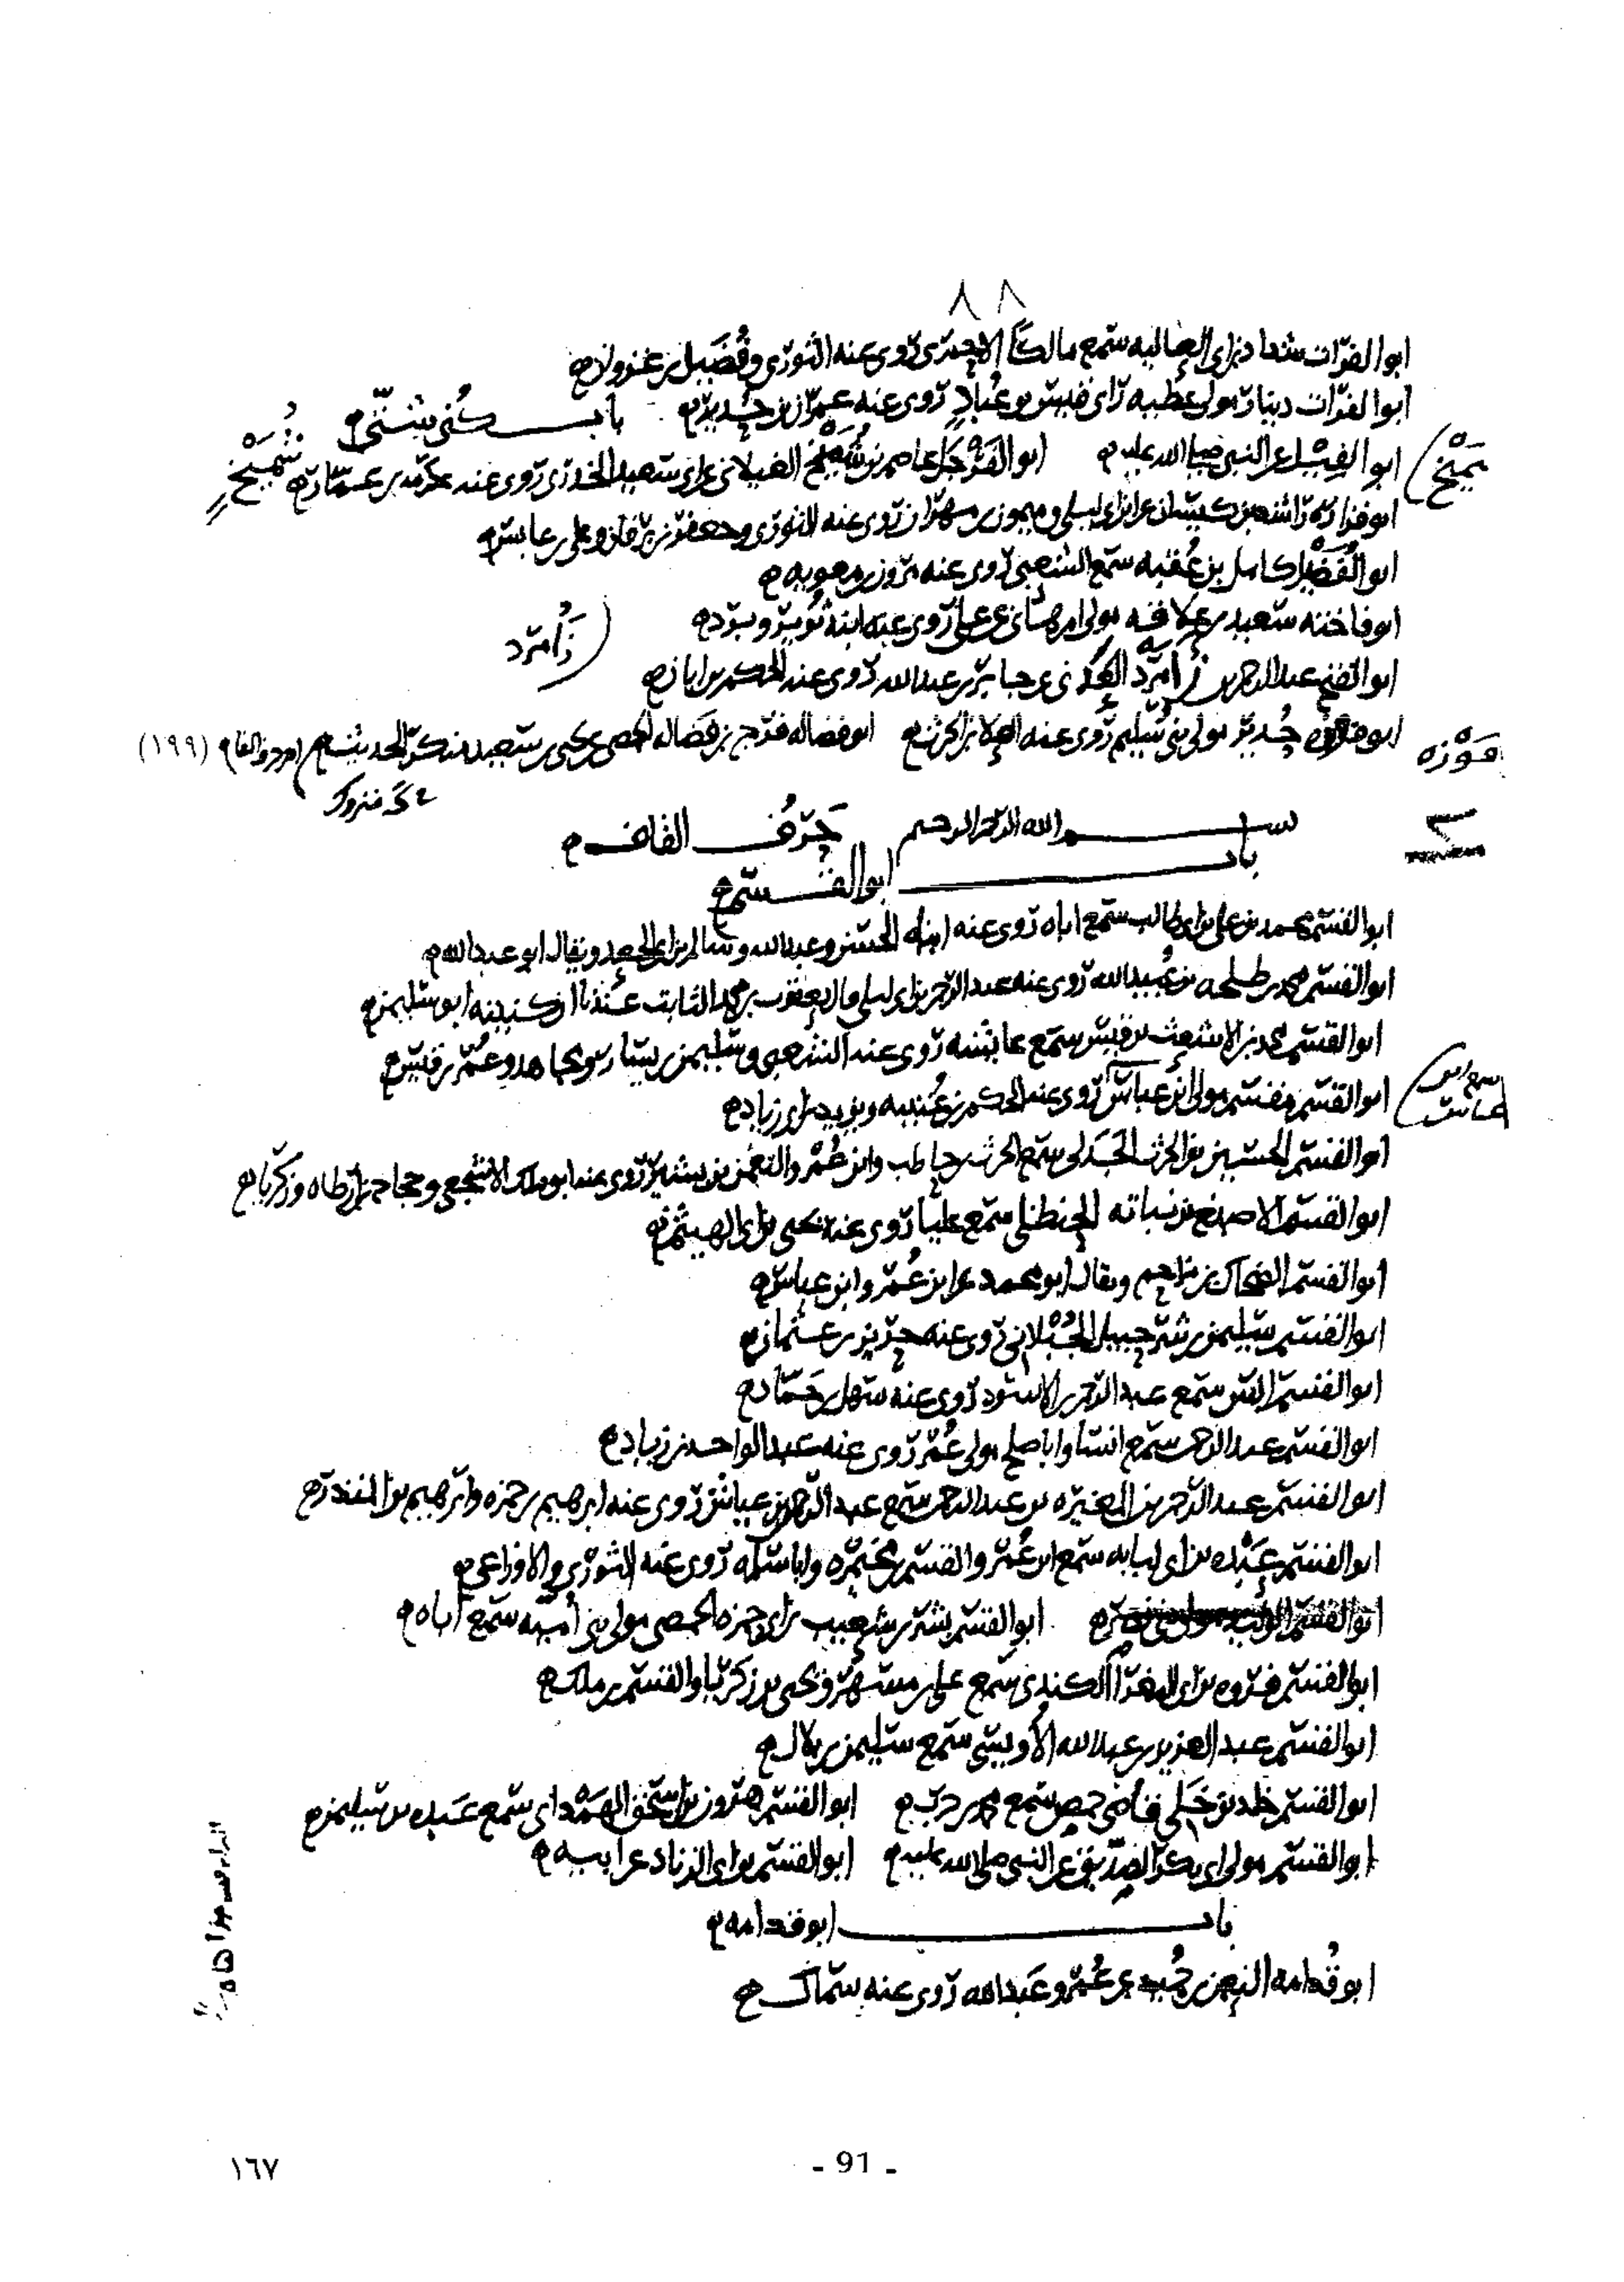 ٨٨
ابو الفرات شداد بن ابى العاليه سمع مالكا الاحمرى روى عنه الثورى وفضيل بن غزوان
ابو الفرات دينار مولى عطيه راى قيس بن عباد روى عنه عمران بن حدير باب كنى شتى
ابو الفيل عن النبى صلى الله عليه ابو الفرجل عاصم بن شميخ الغيلانى عن ابى سعيد الخدرى روى عنه عكرمه بن عمار
شميخ
ابو فزاره راشد بن كيسان عن ابن ابى ليلى وميمون بن مهران روى عنه الثورى وجعفر بن برقان وعلى بن عابس
ابو الفضيل كامل بن عقبه سمع الشعبى روى عنه مرون بن معويه
ابو فاخته سعيد بن علاقه مولى ام هانئ عن على روى عنه ابنه ثوير وبرد
زامرد
ابو الفتح عبد الرحمن زامرد العكى عن جابر بن عبد الله روى عنه الحكم بن ابان
ابو فوزه حدير مولى بنى سليم روى عنه العلا بن الحرث ابو فضاله فرج بن فضاله الحمصى عن يحيى بن سعيد منكر الحديث (١٩٩)
فوزه
متروك
بسم الله الرحمن الرحيم حرف القاف
باب ابو القسم
ابو القسم محمد بن على بن ابى طالب سمع اباه روى عنه ابناه الحسن وعبد الله وسالم بن ابى الجعد ويقال ابو عبد الله
ابو القسم محمد بن طلحه بن عبيد الله روى عنه عبد الرحمن بن ابى ليلى قال يعقوب بن محمد الثابت عندنا ان كنيته ابو سليمن
ابو القسم محمد بن الاشعث بن قيس سمع عايشه روى عنه الشعبى وسليمن بن يسار ومجاهد وعمر بن قيس
ابو القسم مقسم مولى ابن عباس روى عنه الحكم بن عتيبه ويزيد بن ابى زياد
ابو القسم الحسين بن الحرث الجدلى سمع الحرث بن حاطب وابن عمر والنعمن بن بشير روى عنه ابو ملك الاشجعى وحجاج بن ارطاه وزكريا
ابو القسم الاصبغ بن نباته الحنظلى سمع عليا روى عنه يحيى بن ابى الهيثم
ابو القسم الضحاك بن مزاحم ويقال ابو محمد عن ابن عمر وابن عباس
ابو القسم سليمن بن شرحبيل الجبلانى روى عنه حريز بن عثمان
ابو القسم سمع عبد الرحمن بن الاسود روى عنه سهل بن حماد
ابو القسم عبد الرحمن سمع انسا وابا صلح مولى عمر روى عنه عبد الواحد بن زياد
ابو القسم عبد الرحمن بن المغيره بن عبد الرحمن سمع عبد الرحمن بن عياش روى عنه ابرهيم بن حمزه وابرهيم بن المنذر
ابو القسم عبده بن ابى لبابه سمع ابن عمر والقسم بن مخيمره وابا سلمه روى عنه الثورى والاوزاعى
ابو القسم بشر بن شعيب بن ابى حمزه الحمصى مولى بنى اميه سمع اباه
ابو القسم فروه بن ابى المغرا الكندى سمع على بن مسهر ويحيى بن زكريا والقسم بن ملك
ابو القسم عبد العزيز بن عبد الله الاويسى سمع سليمن بن بلال
ابو القسم خلد بن خلى قاضى حمص سمع محمد بن حرب ابو القسم هرون بن اسحق الهمدانى سمع عبده بن سليمن
ابو القسم مولى ابى بكر الصديق عن النبى صلى الله عليه ابو القسم بن ابى الزناد عن ابيه
باب ابو قدامه
ابو قدامه النعمن بن حميد عن عمر وعبد الله روى عنه سماك
- 91 -
١٦٧